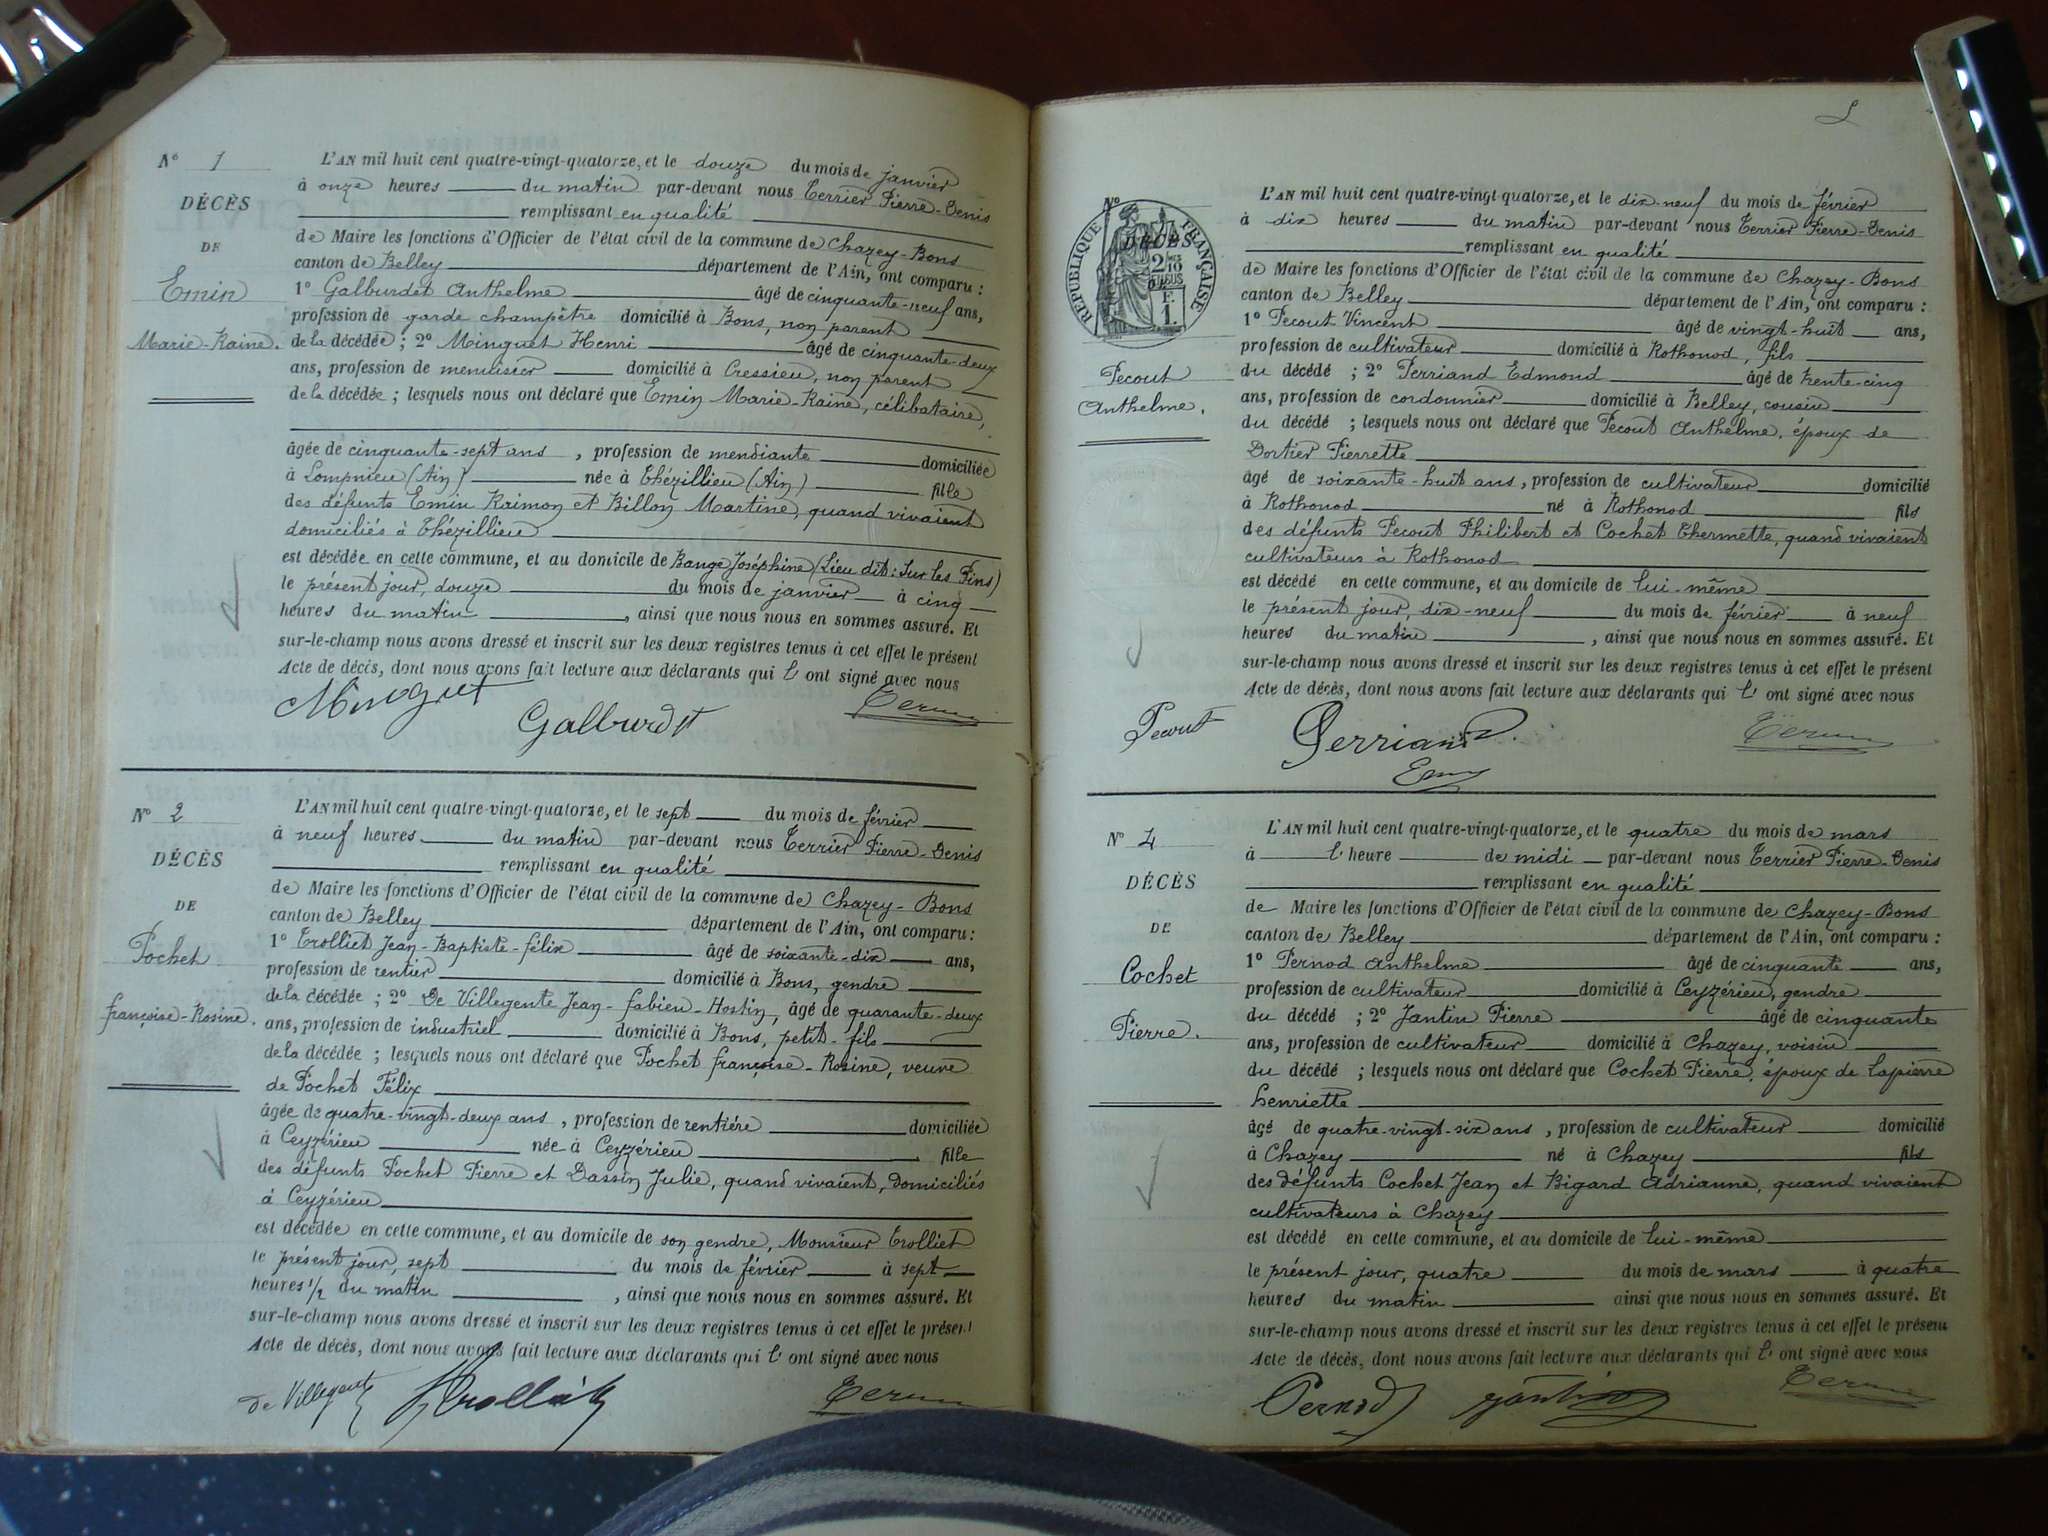 N° 1
DÉCÈS
DE
Emin
Marie-Raine.
L'AN mil huit cent quatre-vingt-quatorze, et le douze du mois de janvier
à onze heures du matin par-devant nous Terrier Pierre-Denis
remplissant en qualité
de Maire les fonctions d'Officier de l'état civil de la commune de Chazey-Bons
canton de Belley département de l'Ain, ont comparu :
1° Galburdet Anthelme âgé de cinquante-neuf ans,
profession de garde champêtre domicilié à Bons, non parent
de la décédée ; 2° Minguet Henri âgé de cinquante-deux
ans, profession de menuisier domicilié à Cressieu, non parent
de la décédée ; lesquels nous ont déclaré que Emin Marie-Raine, célibataire,
âgée de cinquante-sept ans, profession de mendiante domiciliée
à Lompnieu (Ain) née à Thézillieu (Ain) fille
des défunts Emin Raimon et Billon Martine, quand vivaient
domiciliés à Thézillieu
est décédée en cette commune, et au domicile de Bange Joséphine (Lieu dit : Sur les Pins)
le présent jour, douze du mois de janvier à cinq
heures du matin, ainsi que nous nous en sommes assuré. Et
sur-le-champ nous avons dressé et inscrit sur les deux registres tenus à cet effet le présent
Acte de décès, dont nous avons fait lecture aux déclarants qui l' ont signé avec nous
Minguet Galburdet
N° 2
DÉCÈS
DE
Pochet
françoise-Rosine.
L'AN mil huit cent quatre-vingt-quatorze, et le sept du mois de février
à neuf heures du matin par-devant nous Terrier Pierre-Denis
remplissant en qualité
de Maire les fonctions d'Officier de l'état civil de la commune de Chazey-Bons
canton de Belley département de l'Ain, ont comparu :
1° Trolliet Jean-Baptiste-félix âgé de soixante-dix ans,
profession de rentier domicilié à Bons, gendre
de la décédée ; 2° De Villegente Jean-fabien-Hostin, âgé de quarante-deux
ans, profession de industriel domicilié à Bons, petit-fils
de la décédée ; lesquels nous ont déclaré que Pochet françoise-Rosine, veuve
de Pochet Félix
âgée de quatre-vingt-deux ans, profession de rentière domiciliée
à Ceyzérieu née à Ceyzérieu fille
des défunts Pochet Pierre et Dassin Julie, quand vivaient, domiciliés
à Ceyzérieu
est décédée en cette commune, et au domicile de son gendre, Monsieur Trolliet
le présent jour, sept du mois de février à sept
heures 1/2 du matin, ainsi que nous nous en sommes assuré. Et
sur-le-champ nous avons dressé et inscrit sur les deux registres tenus à cet effet le présent
Acte de décès, dont nous avons fait lecture aux déclarants qui l' ont signé avec nous
de Villegente
N°
DÉCÈS
RÉPUBLIQUE FRANÇAISE
Pecout
Anthelme.
L'AN mil huit cent quatre-vingt-quatorze, et le dix-neuf du mois de février
à dix heures du matin par-devant nous Terrier Pierre-Denis
remplissant en qualité
de Maire les fonctions d'Officier de l'état civil de la commune de Chazey-Bons
canton de Belley département de l'Ain, ont comparu :
1° Pecout Vincent âgé de vingt-huit ans,
profession de cultivateur domicilié à Rothonod, fils
du décédé ; 2° Perriand Edmond âgé de trente-cinq
ans, profession de cordonnier domicilié à Belley, cousin
du décédé ; lesquels nous ont déclaré que Pecout Anthelme, époux de
Dortier Pierrette
âgé de soixante-huit ans, profession de cultivateur domicilié
à Rothonod né à Rothonod fils
des défunts Pecout Philibert et Cochet Thermette, quand vivaient
cultivateurs à Rothonod
est décédé en cette commune, et au domicile de lui-même
le présent jour, dix-neuf du mois de février à neuf
heures du matin, ainsi que nous nous en sommes assuré. Et
sur-le-champ nous avons dressé et inscrit sur les deux registres tenus à cet effet le présent
Acte de décès, dont nous avons fait lecture aux déclarants qui l' ont signé avec nous
Pecout Perriand
N° 4
DÉCÈS
DE
Cochet
Pierre.
L'AN mil huit cent quatre-vingt-quatorze, et le quatre du mois de mars
à l'heure de midi par-devant nous Terrier Pierre-Denis
remplissant en qualité
de Maire les fonctions d'Officier de l'état civil de la commune de Chazey-Bons
canton de Belley département de l'Ain, ont comparu :
1° Pernod Anthelme âgé de cinquante ans,
profession de cultivateur domicilié à Ceyzérieu, gendre
du décédé ; 2° Jantin Pierre âgé de cinquante
ans, profession de cultivateur domicilié à Chazey, voisin
du décédé ; lesquels nous ont déclaré que Cochet Pierre, époux de Lapierre
henriette
âgé de quatre-vingt-six ans, profession de cultivateur domicilié
à Chazey né à Chazey fils
des défunts Cochet Jean et Bigard Adrianne, quand vivaient
cultivateurs à Chazey
est décédé en cette commune, et au domicile de lui-même
le présent jour, quatre du mois de mars à quatre
heures du matin ainsi que nous nous en sommes assuré. Et
sur-le-champ nous avons dressé et inscrit sur les deux registres tenus à cet effet le présent
Acte de décès, dont nous avons fait lecture aux déclarants qui l' ont signé avec nous
Pernod Jantin